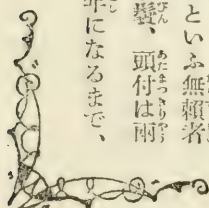 といふ無頼者
鬢、頭付は兩
年になるまで、